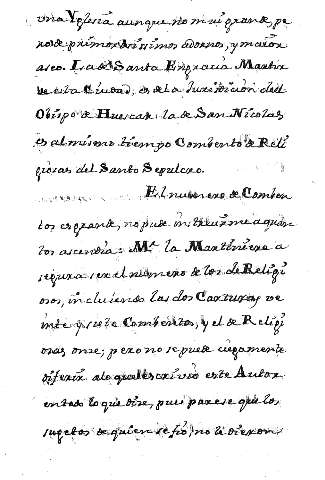 una Yglesia aunque no mui grande, pe
ro de primorosissimos adornos, y maior
aseo. La de Santa Engracia Martir
de esta Ciudad, es de la Jurisdicion del
Obispo de Huesca: la de San Nicolas
es al mismo tiempo Combento de Reli
giosas del Santo Sepulcro.
El numero de Comben
tos es grande, no pude instruirme a quan
tos ascendia: Mr. la Martiniere a
segura ser el numero de los de Religi
osos, incluiendo las dos Cartuxas ve
inte y siete Combentos, y el de Religi
osas once; pero no se puede ciegamente
diferir a lo qual escrivio este Autor
en todo lo que dise, pues parese que los
sugetos de quien se fio, no le dieron